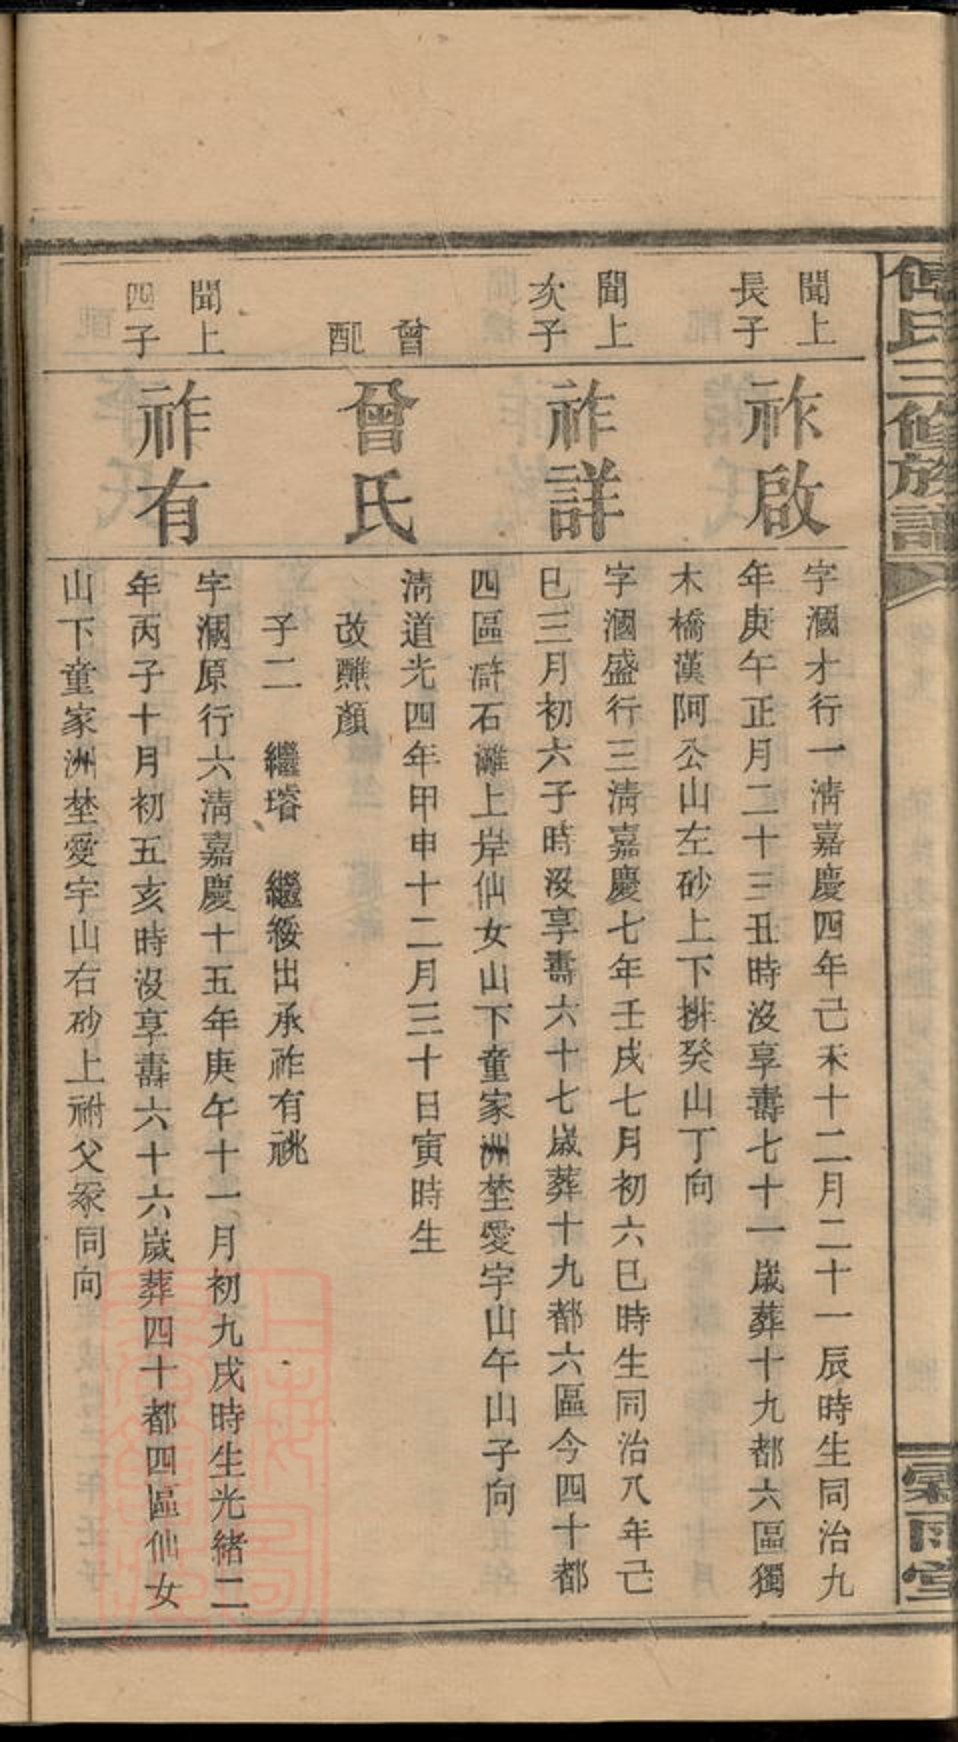 傅氏三修族譜
霖雨堂
聞上
長子
祚啟
字㴽才行一淸嘉慶四年己未十二月二十一辰時生同治九
年庚午正月二十三丑時沒享壽七十一歲葬十九都六區獨
木橋漢阿公山左砂上下排癸山丁向
聞上
次子
祚詳
字㴽盛行三淸嘉慶七年壬戌七月初六巳時生同治八年己
巳三月初六子時沒享壽六十七歲葬十九都六區今四十都
四區滸石灘上岸仙女山下童家洲埜愛宇山午山子向
曾
配
曾氏
淸道光四年甲申十二月三十日寅時生
改醮顏
子二　繼璿　繼綏出承祚有祧
聞上
四子
祚有
字㴽原行六淸嘉慶十五年庚午十一月初九戌時生光緒二
年丙子十月初五亥時沒享壽六十六歲葬四十都四區仙女
山下童家洲埜愛宇山右砂上祔父冢同向